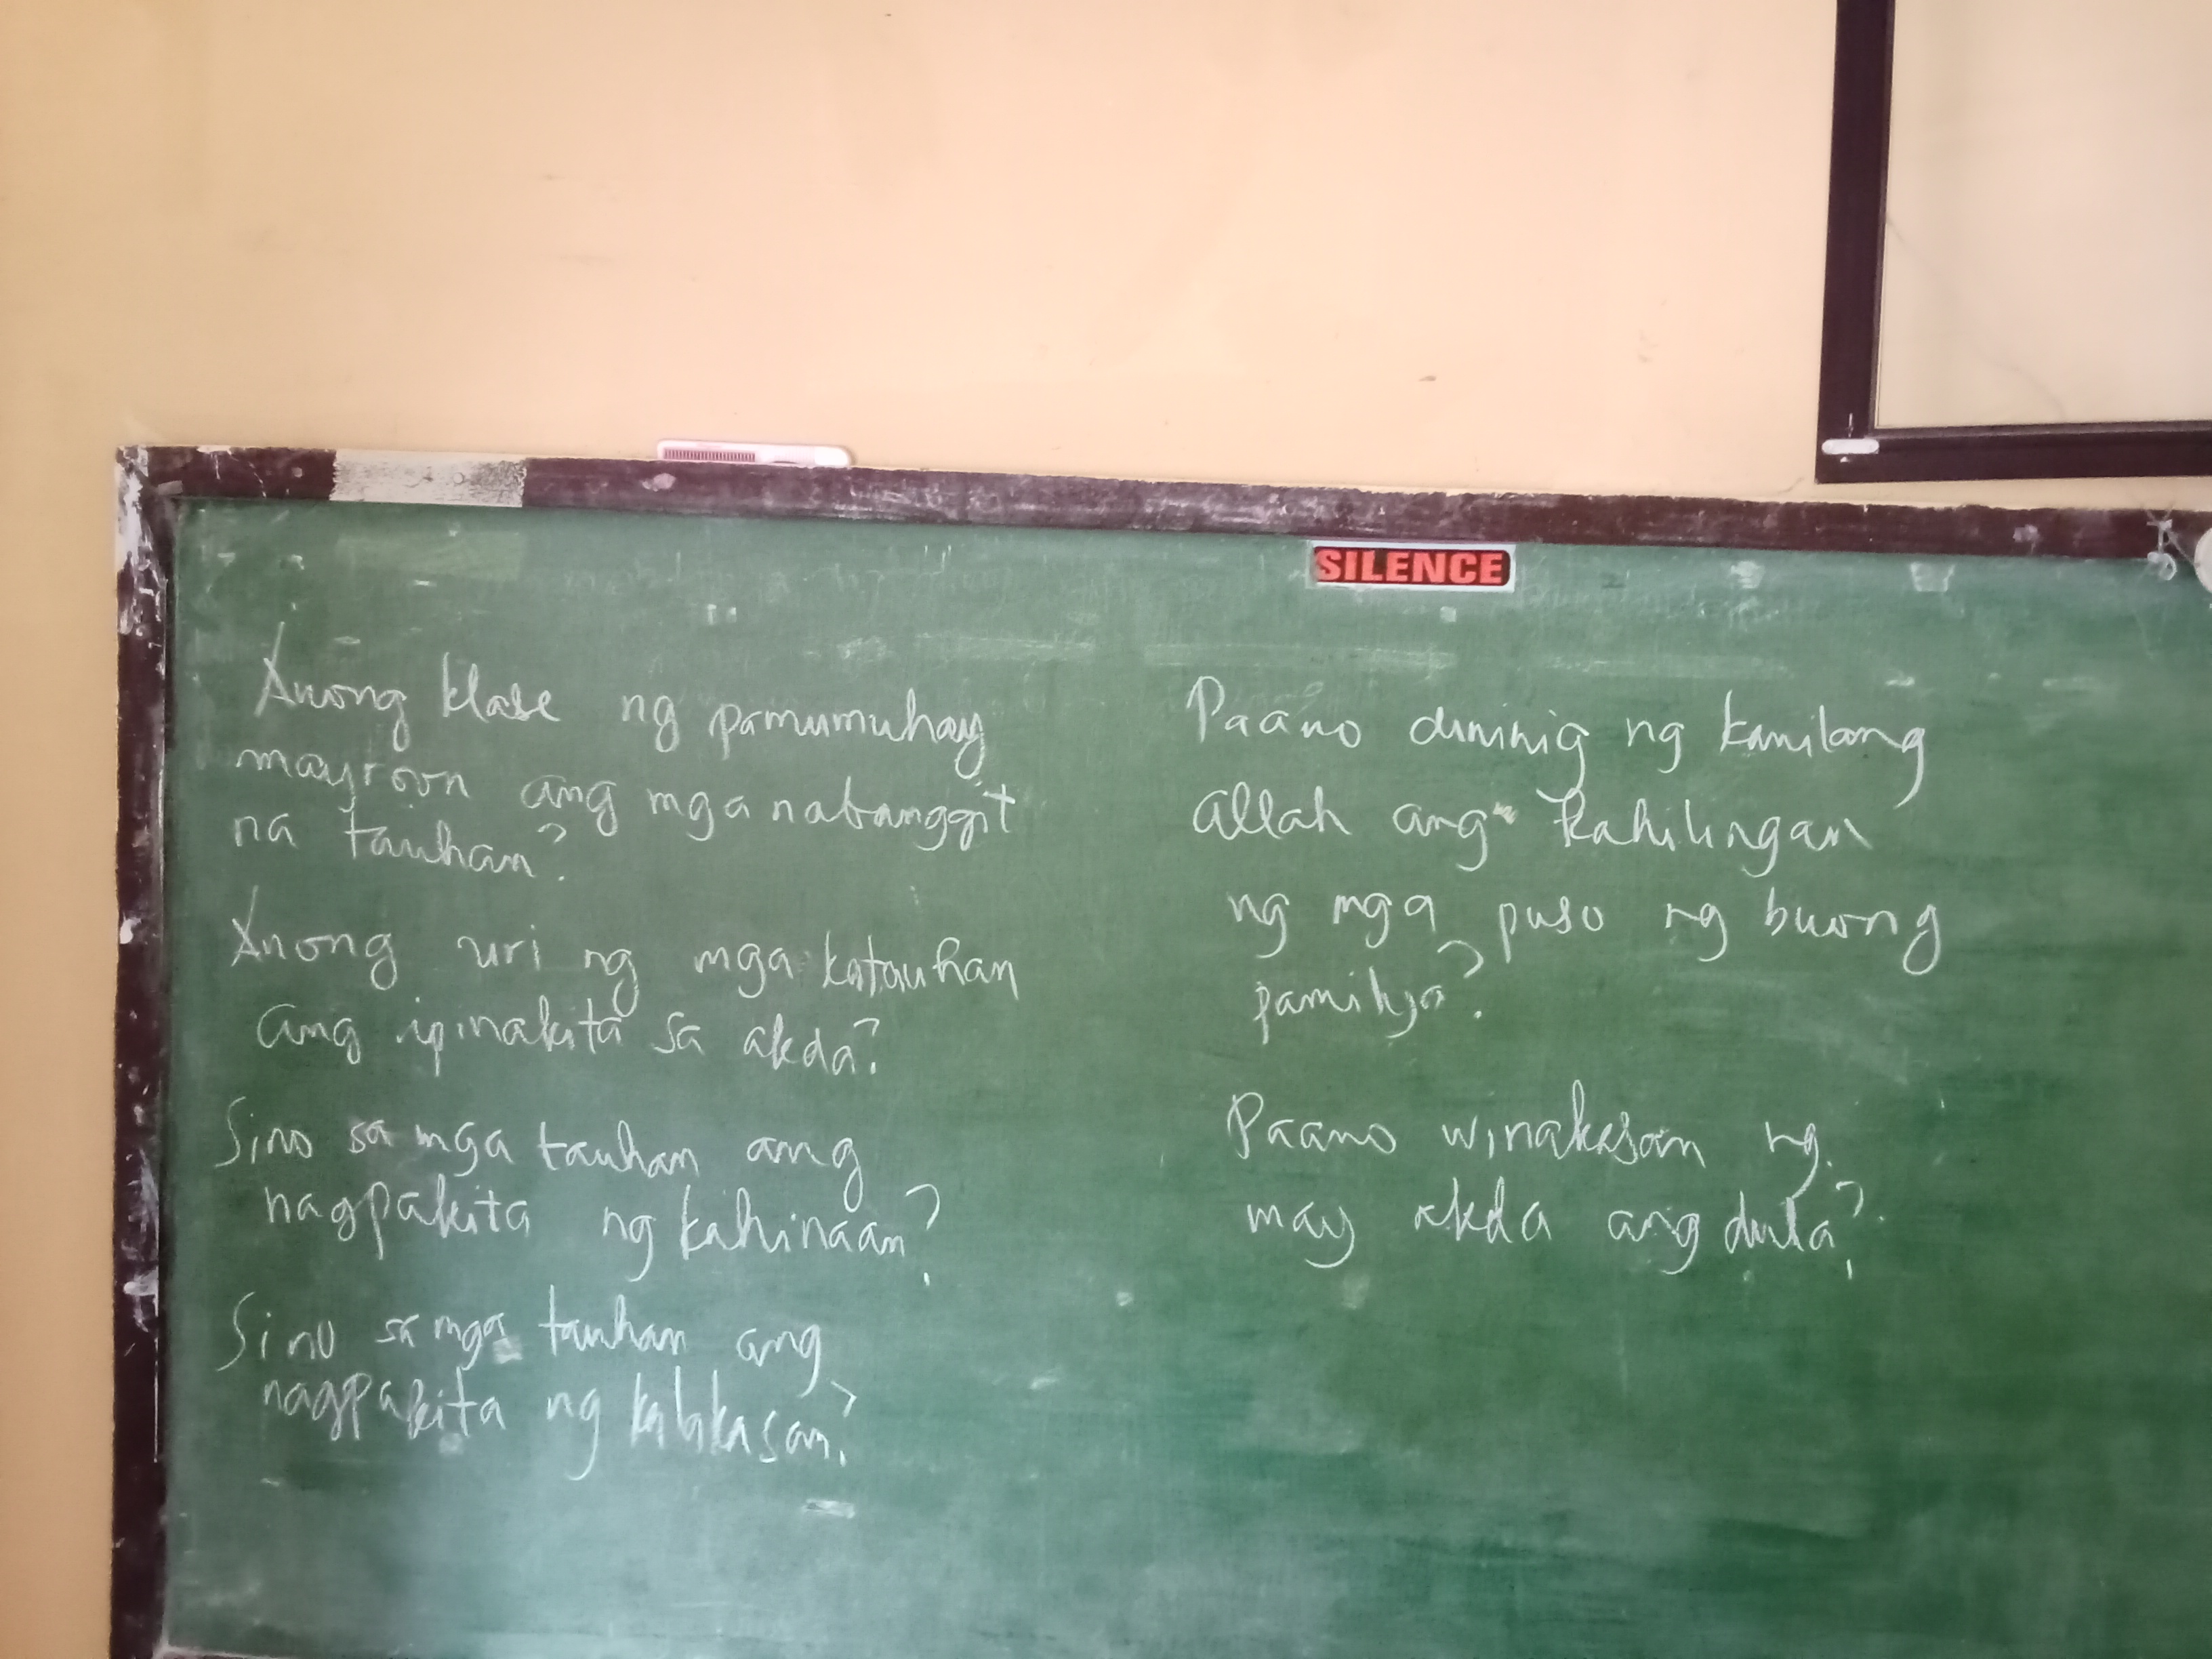 SILENCE
Anong klase ng pamumuhay
mayroon ang mga nabanggit
na tauhan?
Anong uri ng mga katauhan
ang ipinakita sa akda?
Sino sa mga tauhan ang
nagpakita ng kahinaan?
Sino sa mga tauhan ang
nagpakita ng kalakasan?
Paano dininig ng kanilang
Allah ang kahilingan
ng mga puso ng buong
pamilya?
Paano winakasan ng
may akda ang dula?